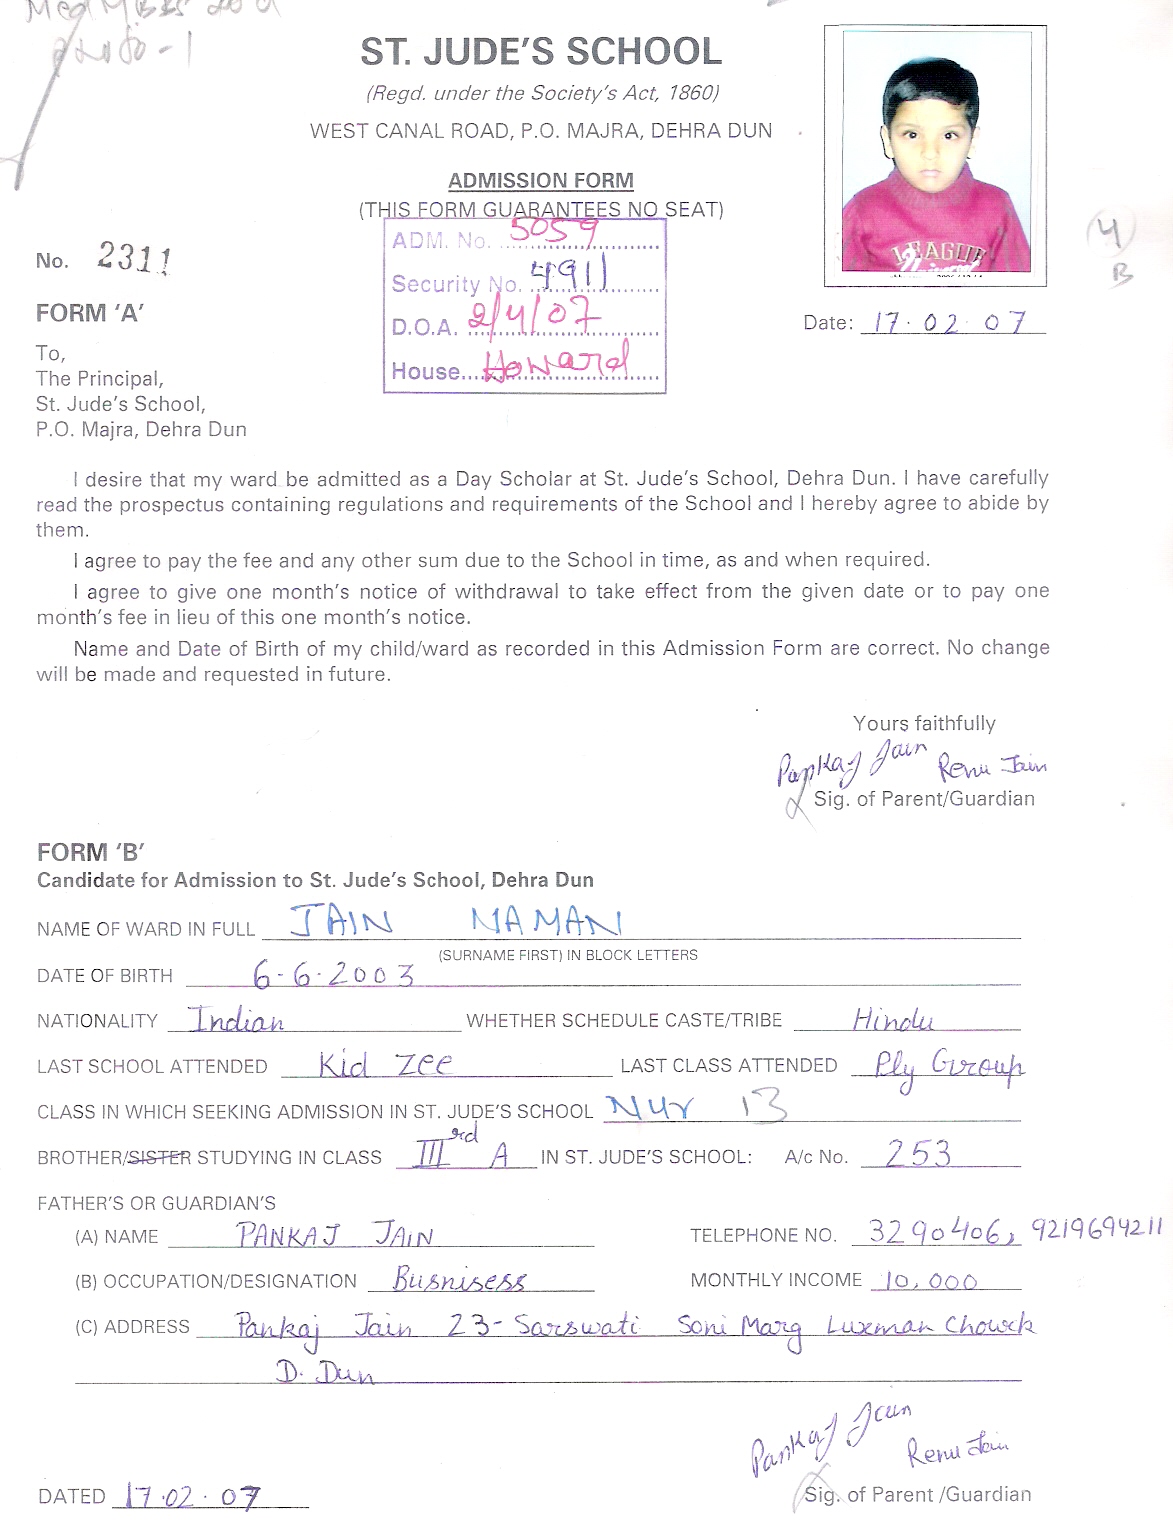 ST. JUDE'S SCHOOL
(Regd. under the Society's Act, 1860)
WEST CANAL ROAD, P.O. MAJRA, DEHRA DUN
ADMISSION FORM
(THIS FORM GUARANTEES NO SEAT)
ADM. No. 5059
No. 2311
Security No. 4911
FORM 'A'
D.O.A. 2/4/07
Date: 17.02.07
House Howard
LEAGUE
4
B
To,
The Principal,
St. Jude's School,
P.O. Majra, Dehra Dun
I desire that my ward be admitted as a Day Scholar at St. Jude's School, Dehra Dun. I have carefully
read the prospectus containing regulations and requirements of the School and I hereby agree to abide by
them.
I agree to pay the fee and any other sum due to the School in time, as and when required.
I agree to give one month's notice of withdrawal to take effect from the given date or to pay one
month's fee in lieu of this one month's notice.
Name and Date of Birth of my child/ward as recorded in this Admission Form are correct. No change
will be made and requested in future.
Yours faithfully
Pankaj Jain Renu Jain
Sig. of Parent/Guardian
FORM 'B'
Candidate for Admission to St. Jude's School, Dehra Dun
NAME OF WARD IN FULL JAIN NAMAN
(SURNAME FIRST) IN BLOCK LETTERS
DATE OF BIRTH 6-6-2003
NATIONALITY Indian WHETHER SCHEDULE CASTE/TRIBE Hindu
LAST SCHOOL ATTENDED Kid Zee LAST CLASS ATTENDED Ply Group
CLASS IN WHICH SEEKING ADMISSION IN ST. JUDE'S SCHOOL Nur B
BROTHER/SISTER STUDYING IN CLASS IIIrd A IN ST. JUDE'S SCHOOL: A/c No. 253
FATHER'S OR GUARDIAN'S
(A) NAME PANKAJ JAIN TELEPHONE NO. 3290406, 9219694211
(B) OCCUPATION/DESIGNATION Busnisess MONTHLY INCOME 10,000
(C) ADDRESS Pankaj Jain 23-Sarswati Soni Marg Luxman Chowck
D. Dun
Pankaj Jain Renu Jain
DATED 17.02.07 Sig. of Parent /Guardian